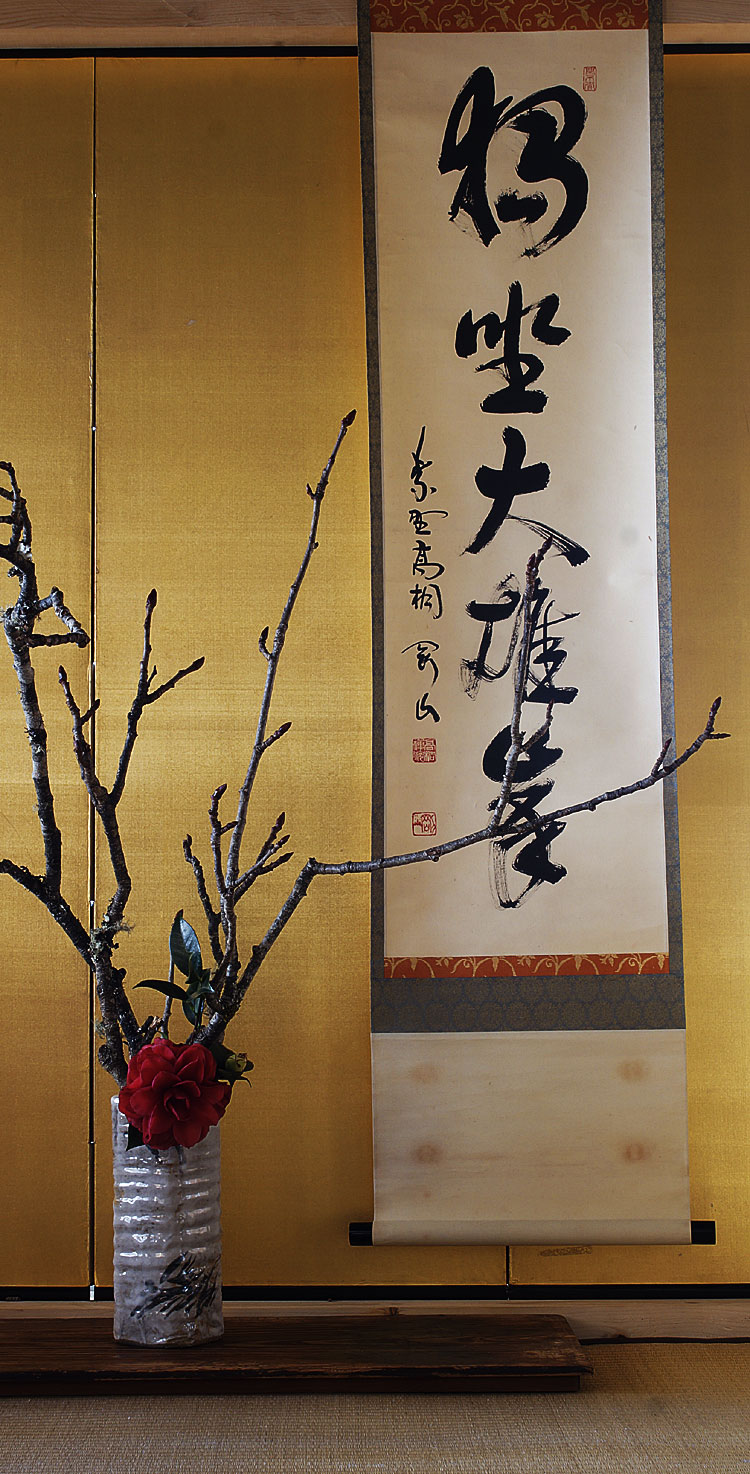 獨坐大雄峯
紫野高桐 剛山